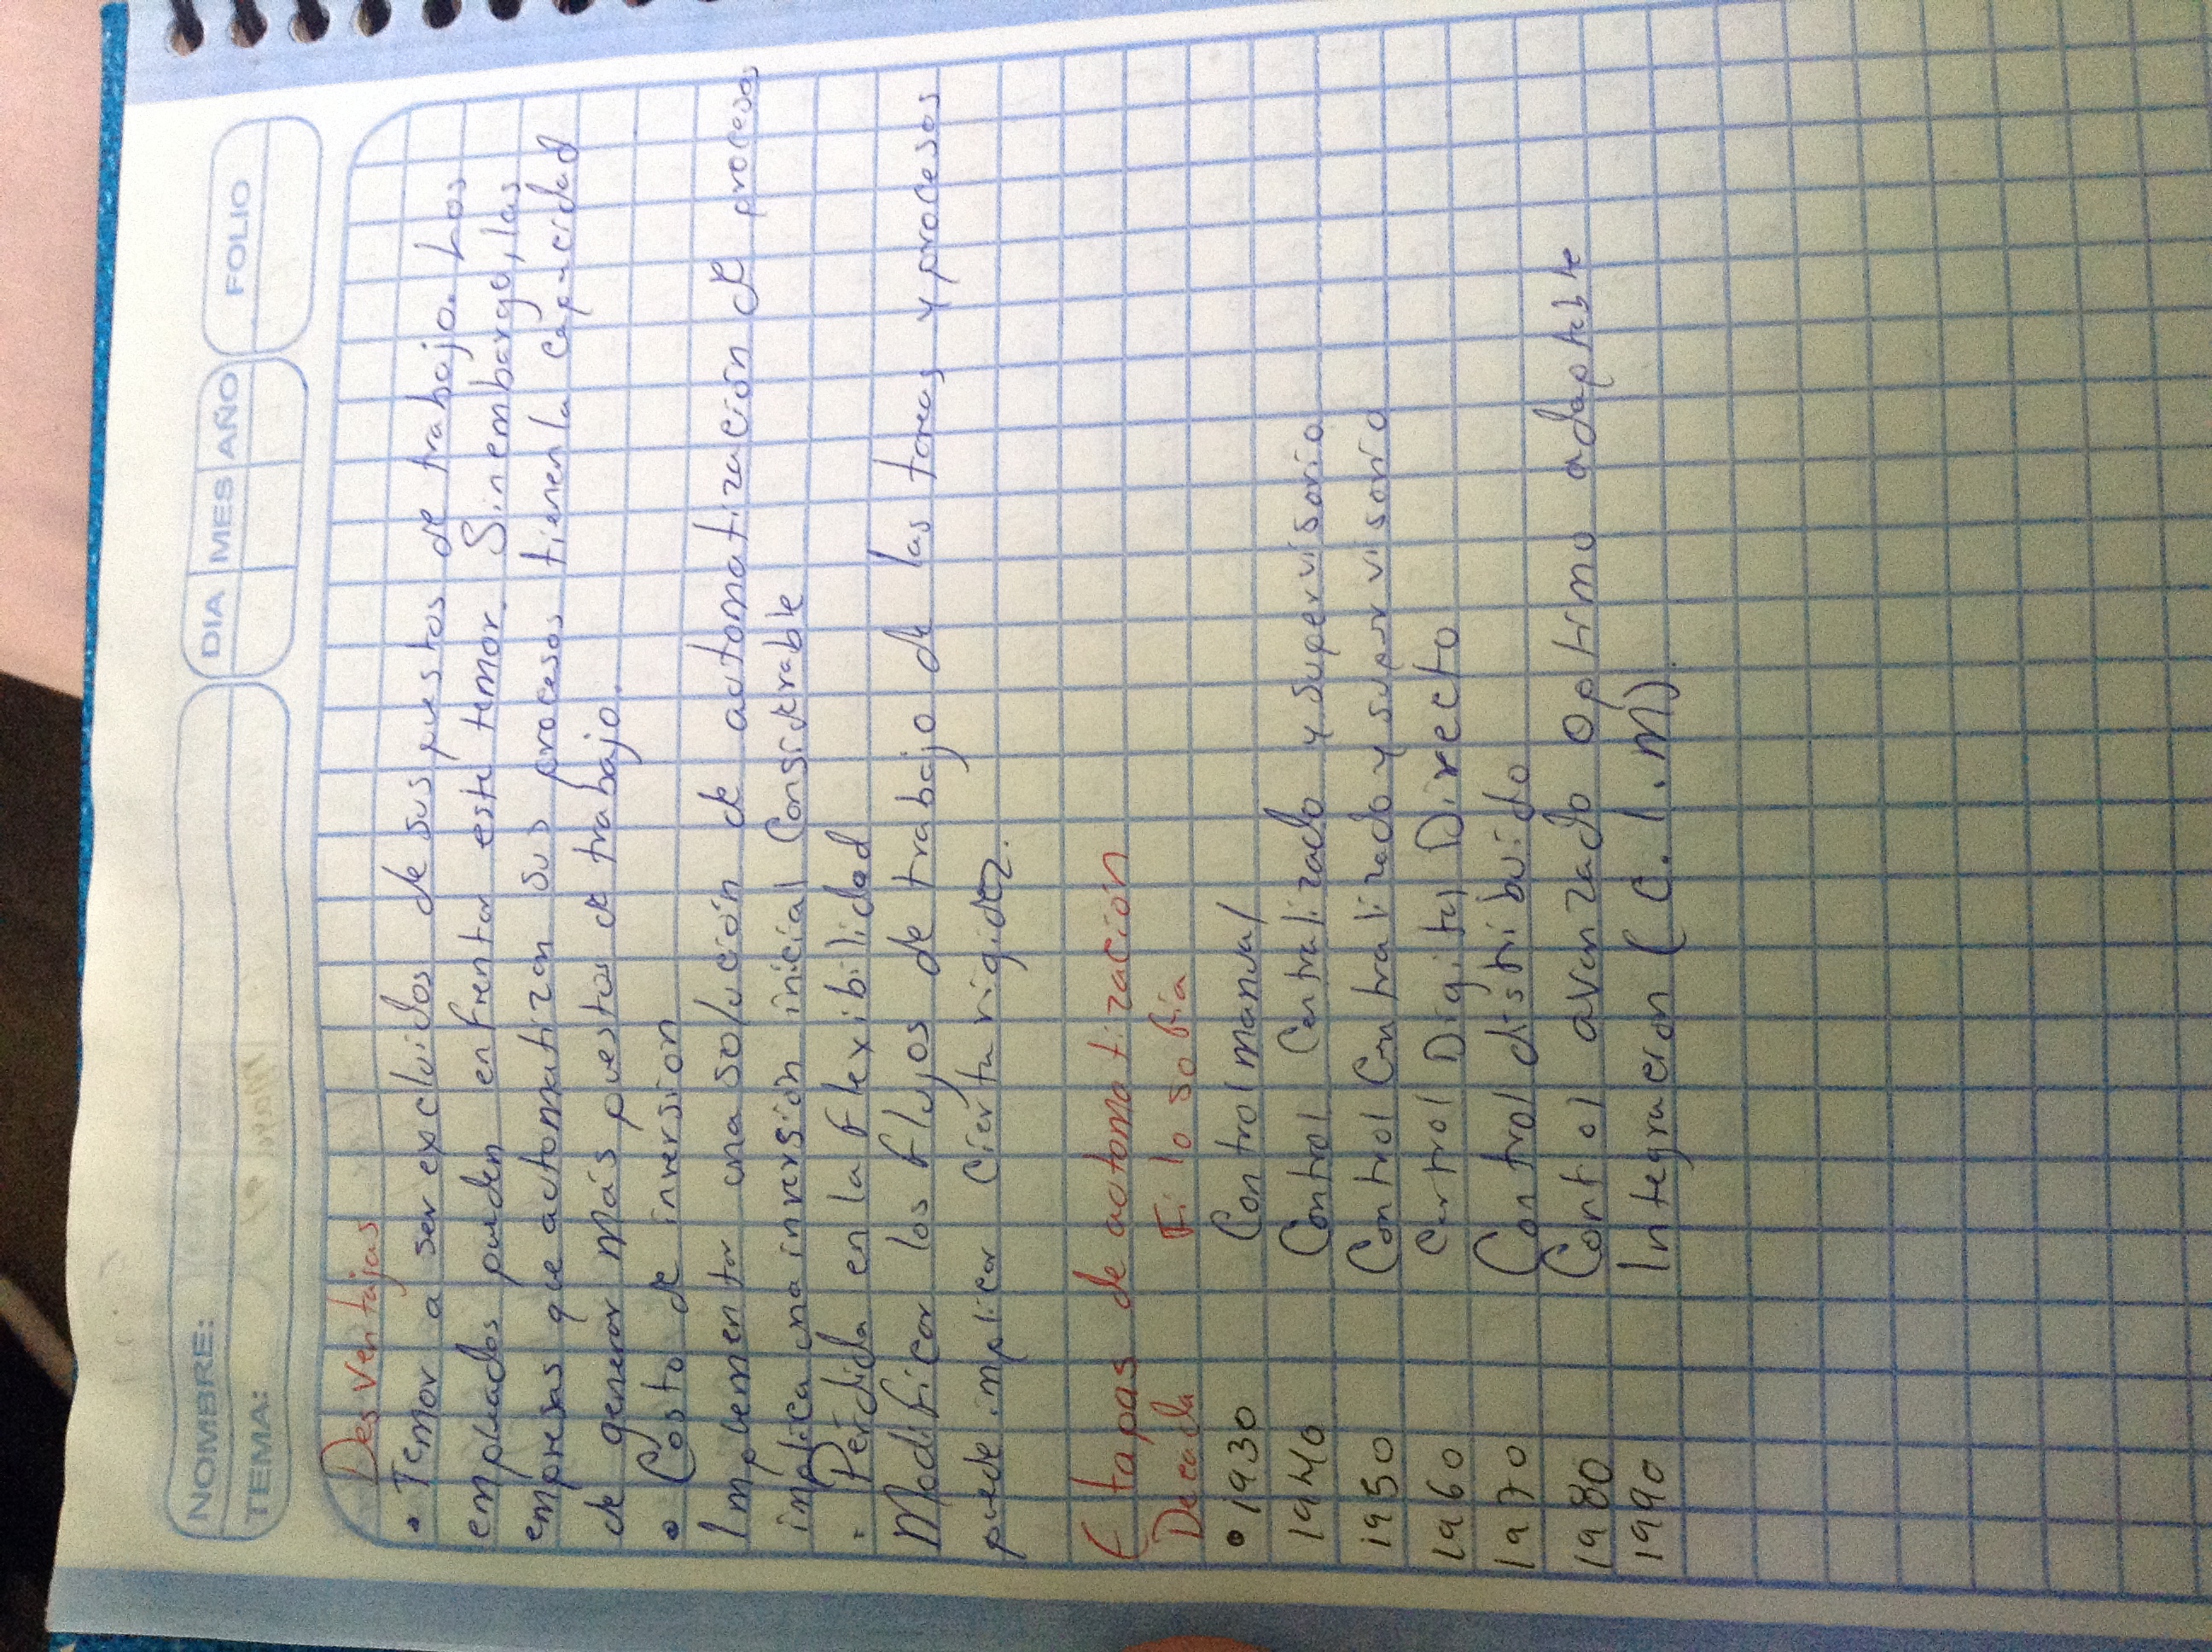 NOMBRE:
DIA MES AÑO
FOLIO
TEMA:
Desventajas
• Temor a ser excluidos de sus puestos de trabajo. Los
empleados pueden enfrentar este temor. Sin embargo, las
empresas que automatizan sus procesos tienen la capacidad
de generar más puestos de trabajo.
• Costo de inversion
Implementar una solución de automatización de procesos
implica una inversión inicial Considerable
• Pérdida en la flexibilidad
Modificar los flujos de trabajo de las tareas y procesos
puede implicar Cierta rigidez.
Etapas de automatización
Decada Filosofia
• 1930 Control manual
1940 Control Centralizado y supervisorio
1950 Control Centralizado y supervisorio
1960 Control Digital Directo
1970 Control distribuido
1980 Control avanzado optimo adaptable
1990 Integracion (C.I.M).